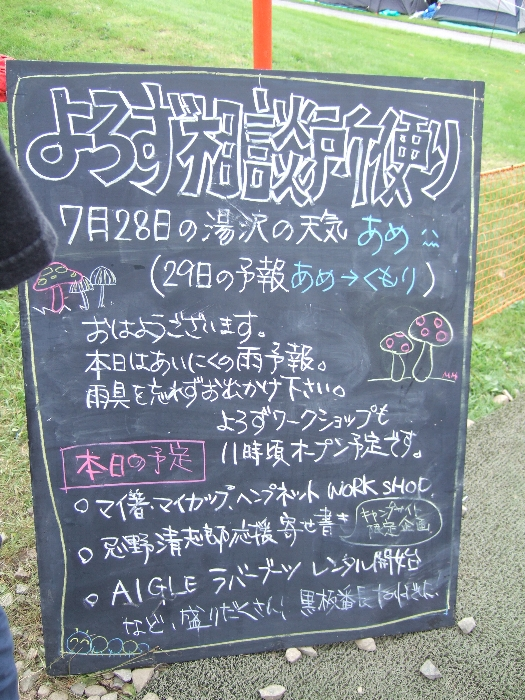 よろず相談所便り
7月28日の湯沢の天気 あめ
(29日の予報あめ→くもり)
おはようございます。
本日はあいにくの雨予報。
雨具を忘れずお出かけ下さい。
よろずワークショップも
11時頃オープン予定です。
本日の予定
○マイ箸・マイカップ、ヘンプネット WORK SHOP.
○忌野清志郎応援寄せ書き キャンプサイト限定企画
○AIGLE ラバーブーツ レンタル開始
など、盛りだくさん! 黒板番長